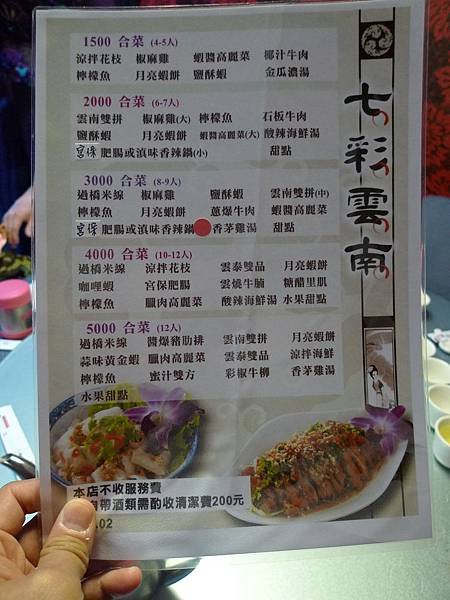 1500 合菜 (4-5人)
涼拌花枝 椒麻雞 蝦醬高麗菜 椰汁牛肉
檸檬魚 月亮蝦餅 鹽酥蝦 金瓜濃湯
2000 合菜 (6-7人)
雲南雙拼 椒麻雞(大) 檸檬魚 石板牛肉
鹽酥蝦 月亮蝦餅 蝦醬高麗菜(大) 酸辣海鮮湯
宮保肥腸或滇味香辣鍋(小) 甜點
3000 合菜 (8-9人)
過橋米線 椒麻雞 鹽酥蝦 雲南雙拼(中)
檸檬魚 月亮蝦餅 蔥爆牛肉 蝦醬高麗菜
宮保肥腸或滇味香辣鍋 香茅雞湯 甜點
4000 合菜 (10-12人)
過橋米線 涼拌花枝 雲泰雙品 月亮蝦餅
咖哩蝦 宮保肥腸 雲燒牛腩 糖醋里肌
檸檬魚 臘肉高麗菜 酸辣海鮮湯 水果甜點
5000 合菜 (12人)
過橋米線 醬爆豬肋排 雲南雙拼 月亮蝦餅
蒜味黃金蝦 臘肉高麗菜 雲泰雙品 涼拌海鮮
檸檬魚 蜜汁雙方 彩椒牛柳 香茅雞湯
水果甜點
七彩雲南
本店不收服務費
帶酒類需酌收清潔費200元
.02